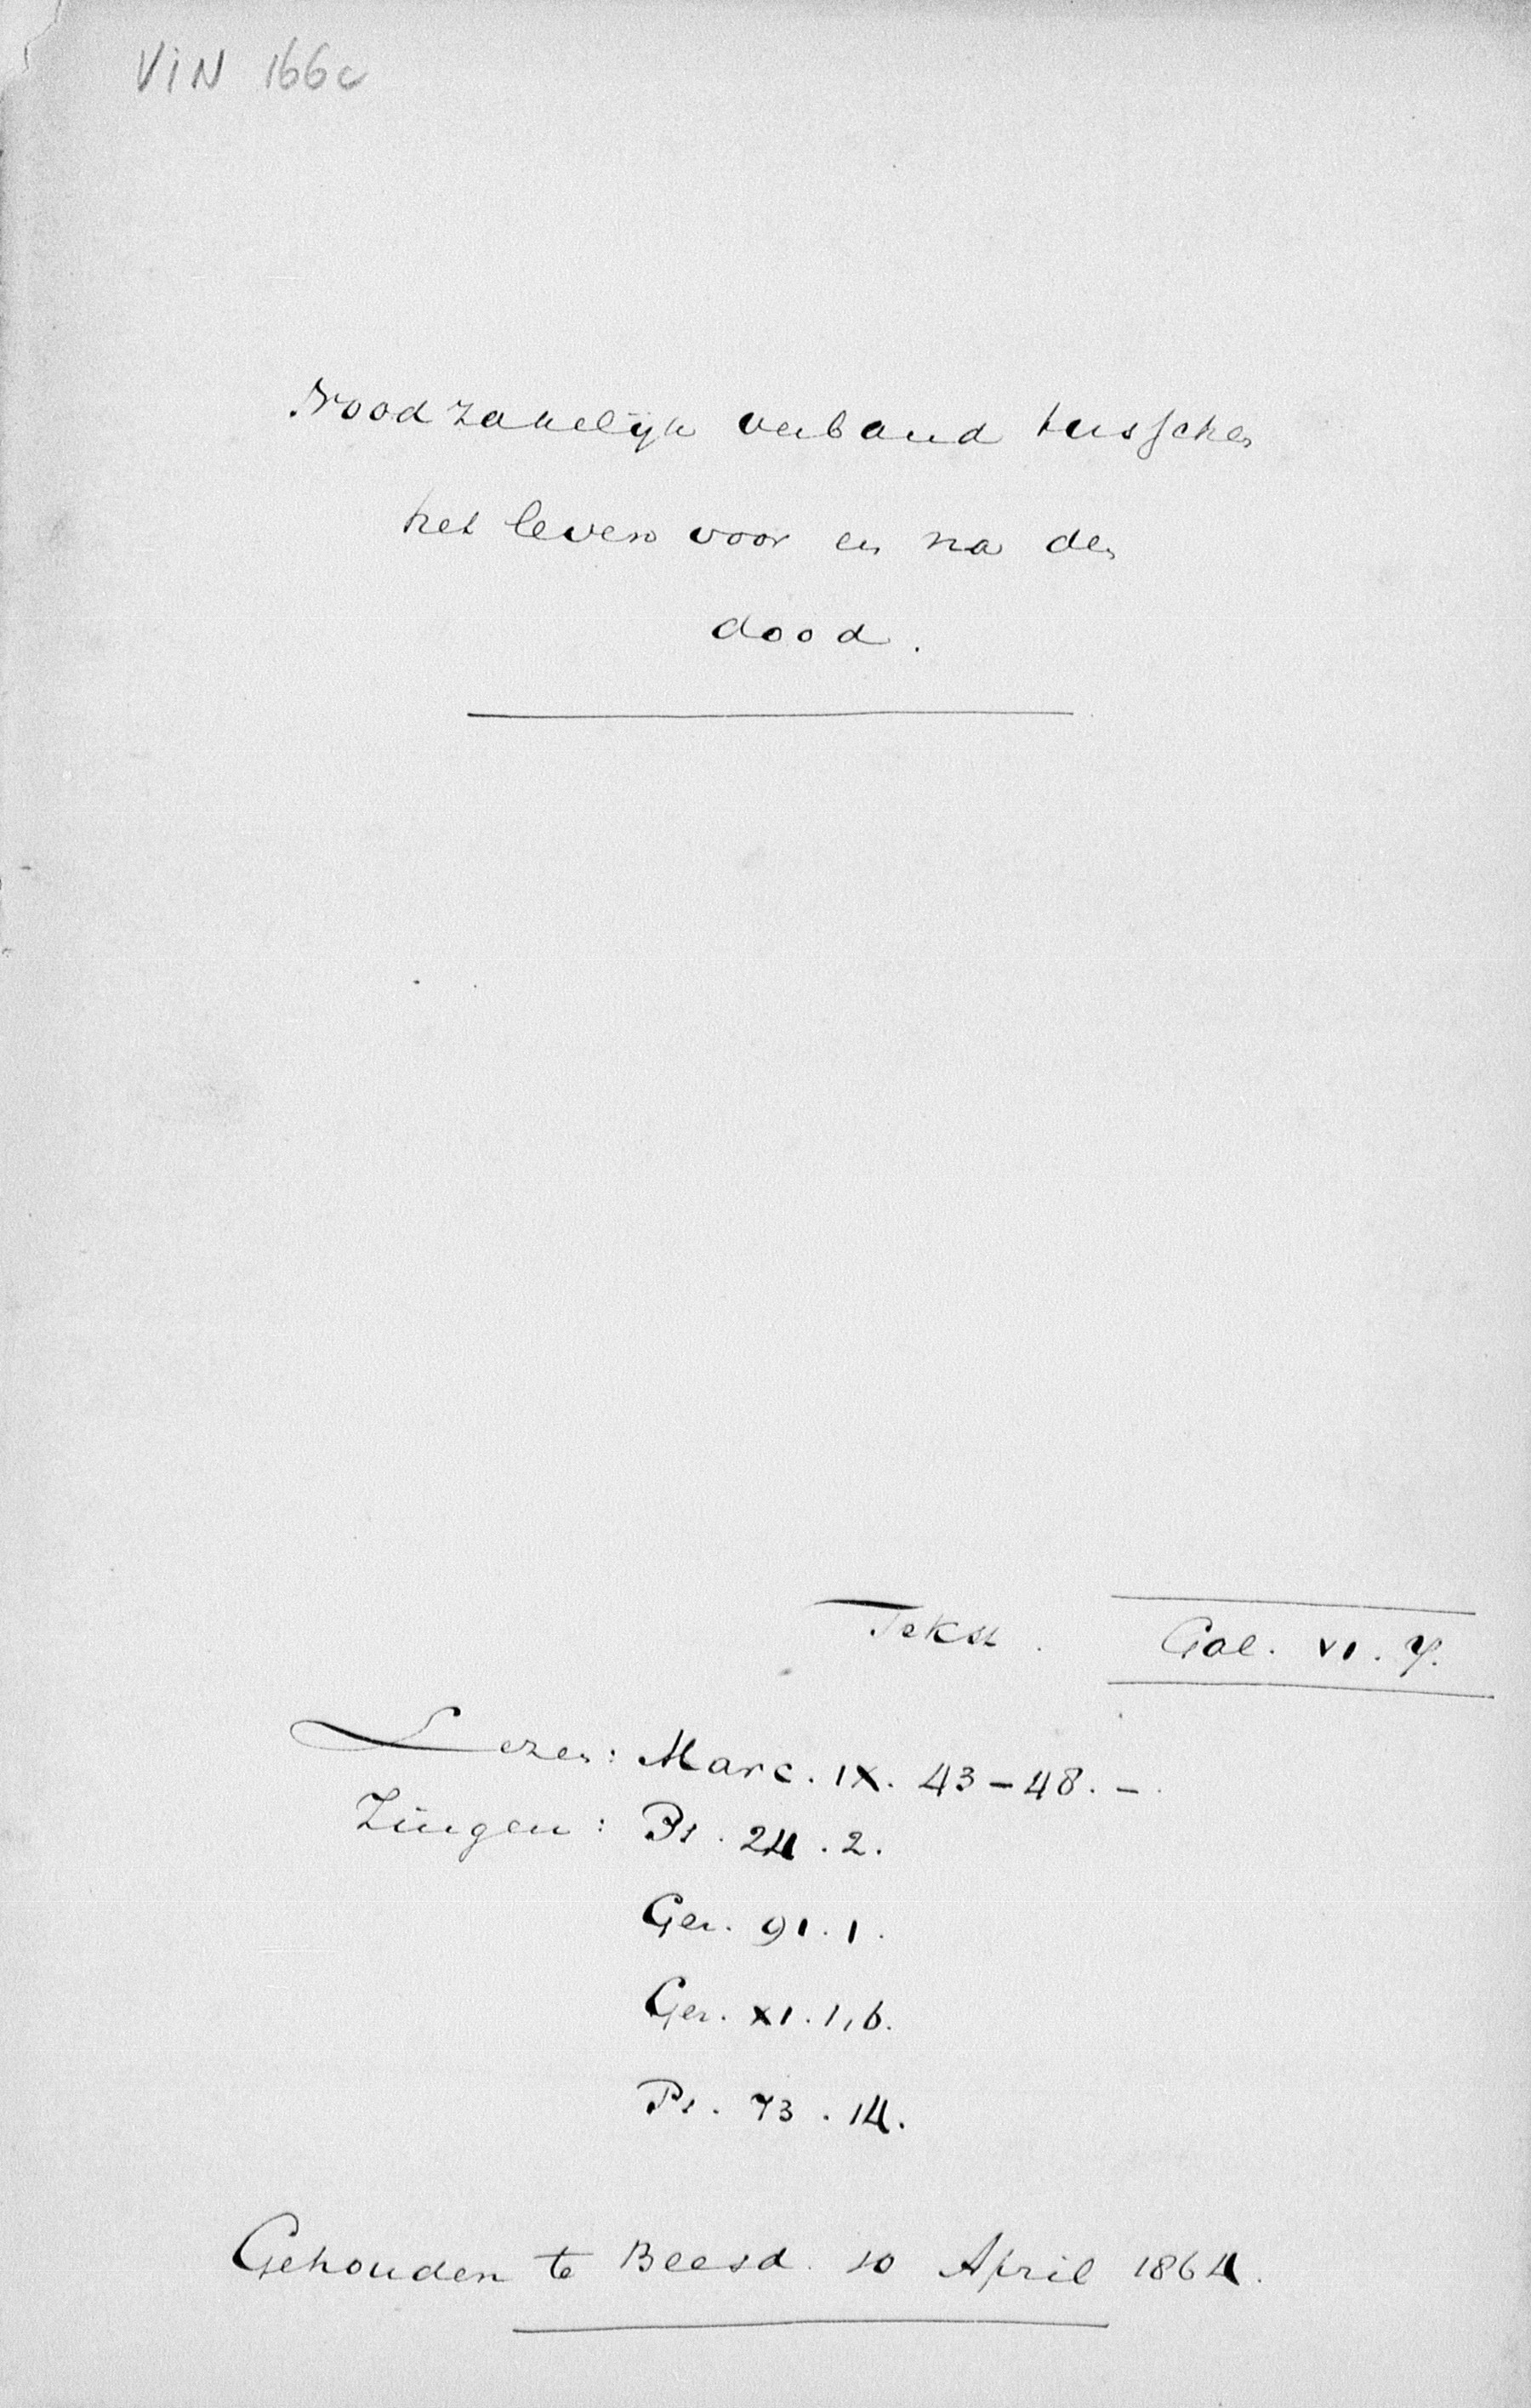 VIN 166c
Noodzakelijk verband tusschen
het leven voor en na den
dood.
Tekst. Gal. VI. 7.
Lezen: Marc. IX. 43-48.-
Zingen: Ps. 24.2.
Gez. 91.1.
Gez. XI. 1,6.
Ps. 73.14.
Gehouden te Beesd. 10 April 1864.